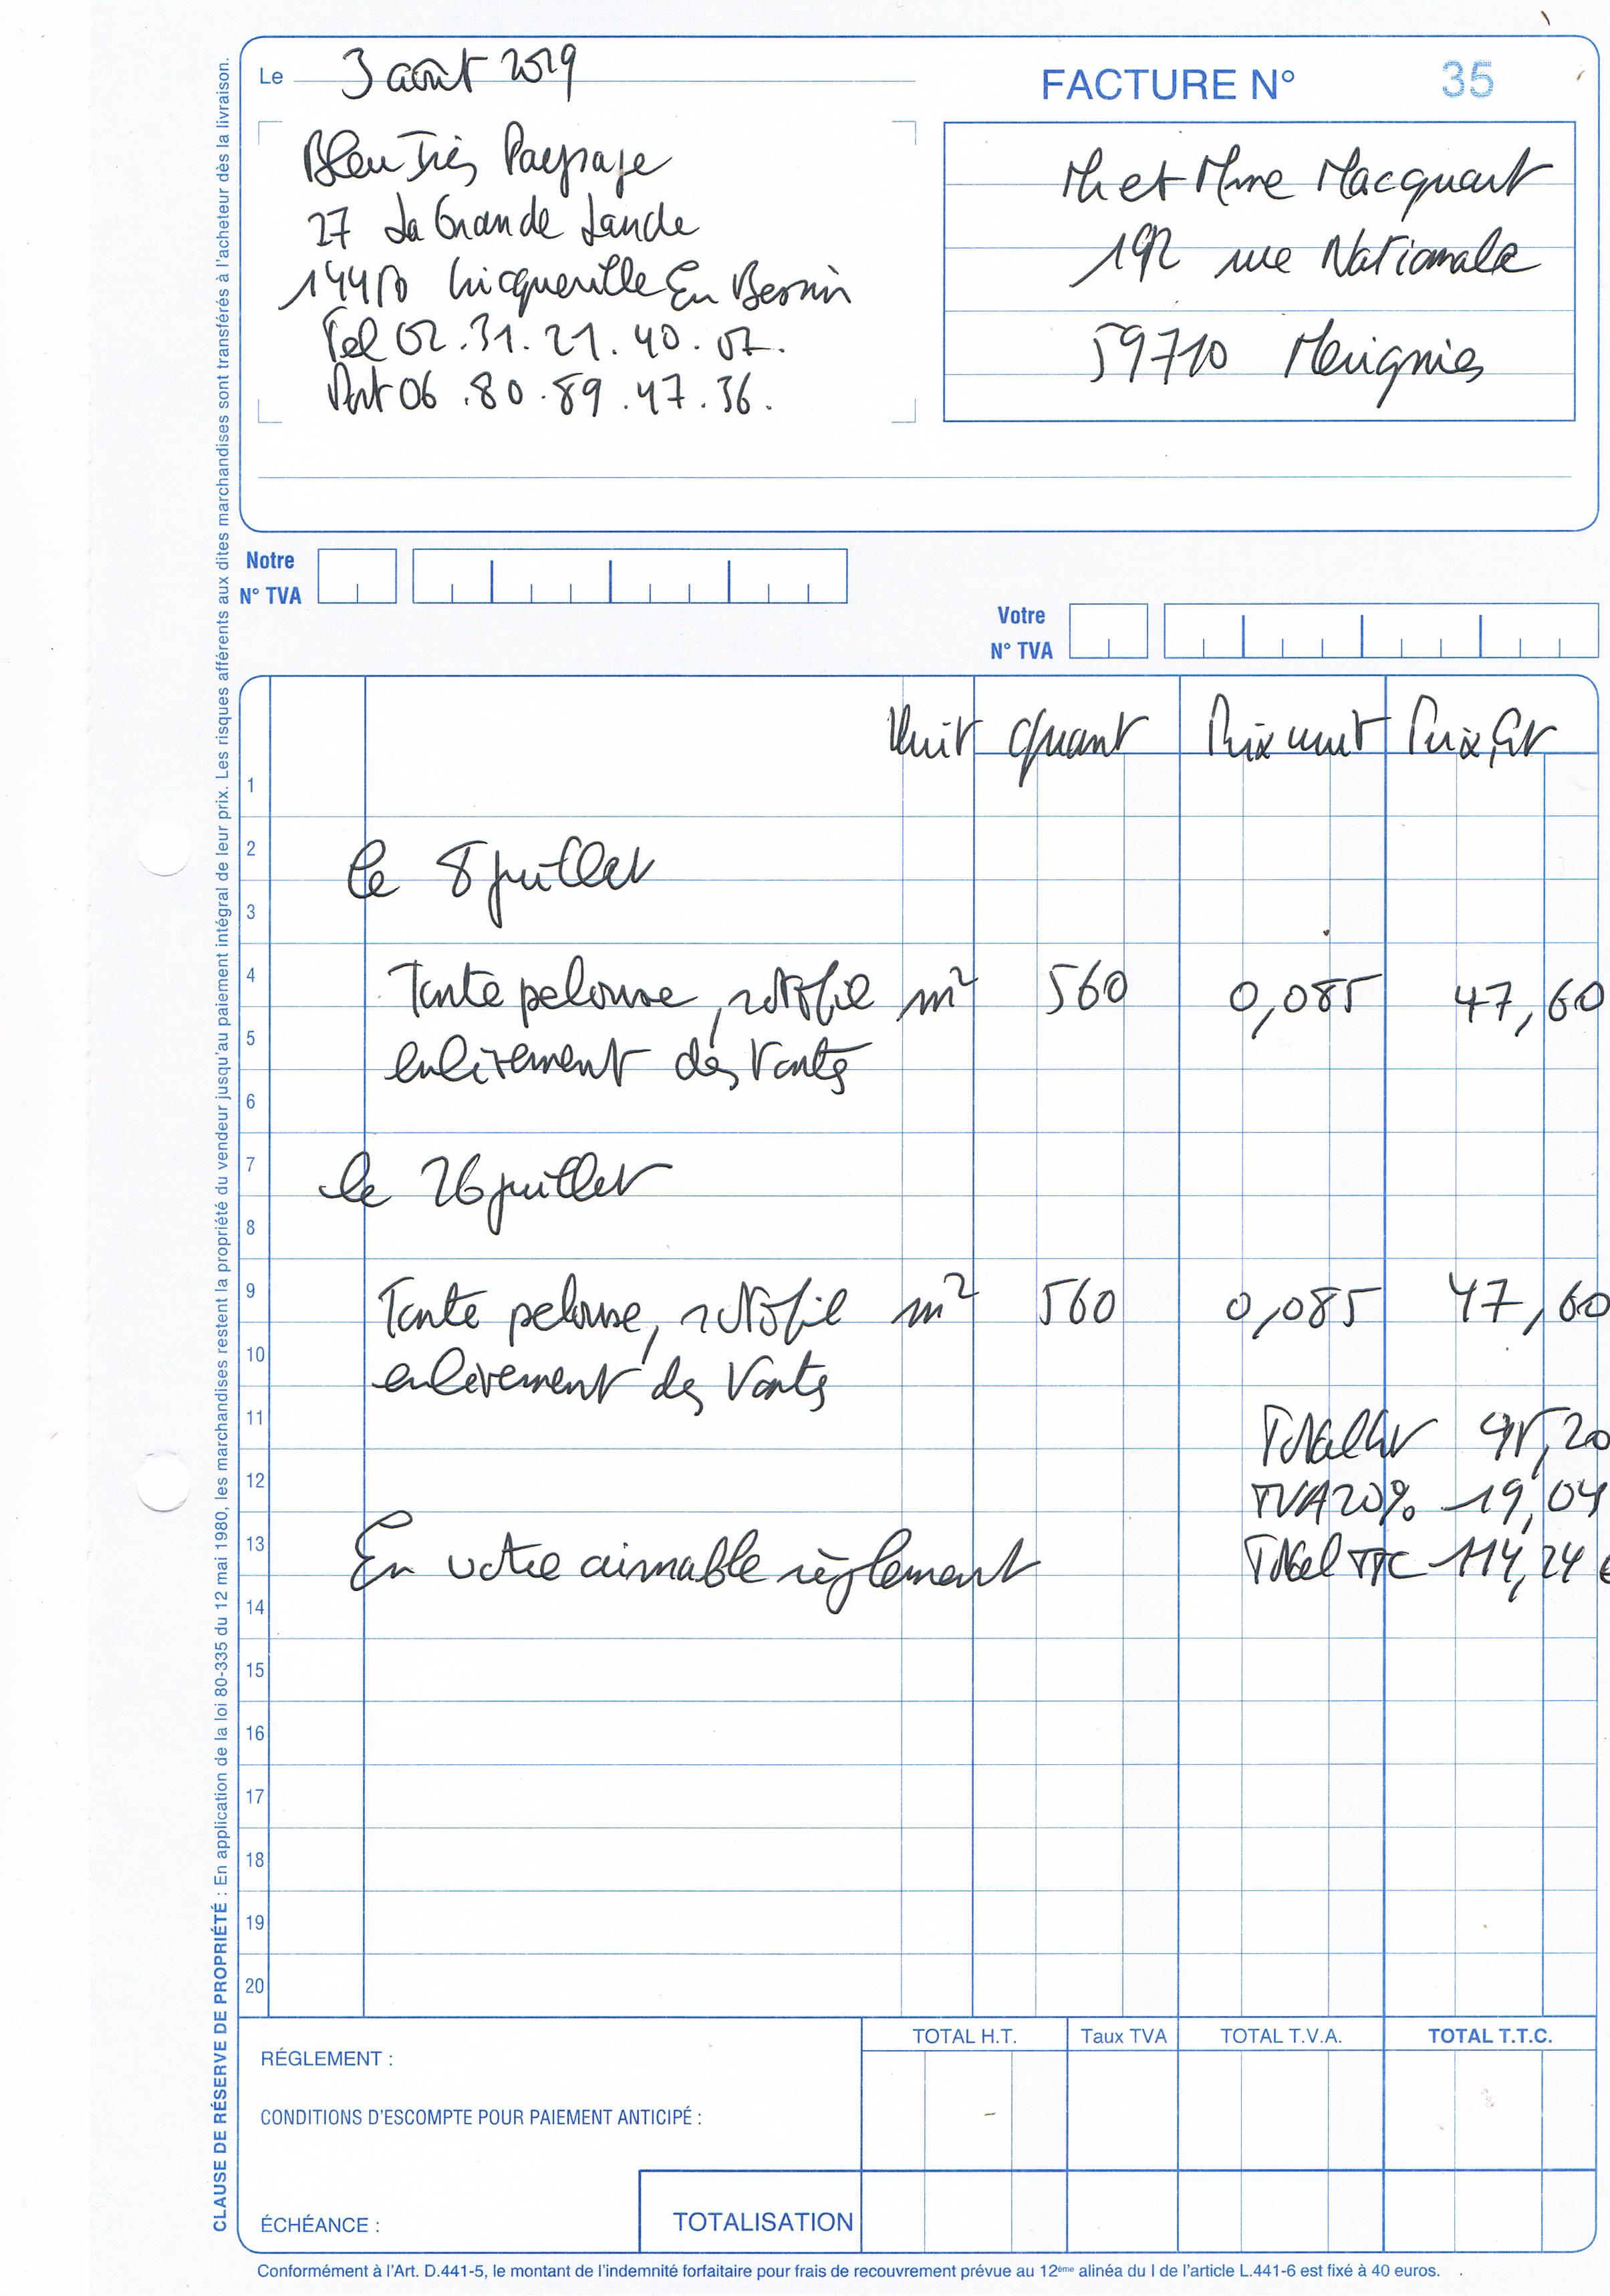 Le 3 août 2019
FACTURE N° 35
Paysage
27 La Grande Lande
En Bessin
Tel 02.31.21.40.07.
Port 06.80.89.47.36.
M et Mme Macquart
192 rue Nationale
59710 Merignies
Notre
N° TVA
Votre
N° TVA
Unit quant Prix unit Prix HT
1
2
le 8 juillet
3
4
Tonte pelouse, rotofil m² 560 0,085 47,60
5
enlèvement des Tontes
6
7
le 26 juillet
8
9
Tonte pelouse, rotofil m² 560 0,085 47,60
10
enlèvement des Tontes
11
Total HT 95,20
12
TVA 20% 19,04
13
En votre aimable règlement Total TTC 114,24 €
14
15
16
17
18
19
20
TOTAL H.T. Taux TVA TOTAL T.V.A. TOTAL T.T.C.
RÉGLEMENT :
CONDITIONS D'ESCOMPTE POUR PAIEMENT ANTICIPÉ :
ÉCHÉANCE :
TOTALISATION
Conformément à l'Art. D.441-5, le montant de l'indemnité forfaitaire pour frais de recouvrement prévue au 12ème alinéa du I de l'article L.441-6 est fixé à 40 euros.
CLAUSE DE RÉSERVE DE PROPRIÉTÉ : En application de la loi 80-335 du 12 mai 1980, les marchandises restent la propriété du vendeur jusqu'au paiement intégral de leur prix. Les risques afférents aux dites marchandises sont transférés à l'acheteur dès la livraison.